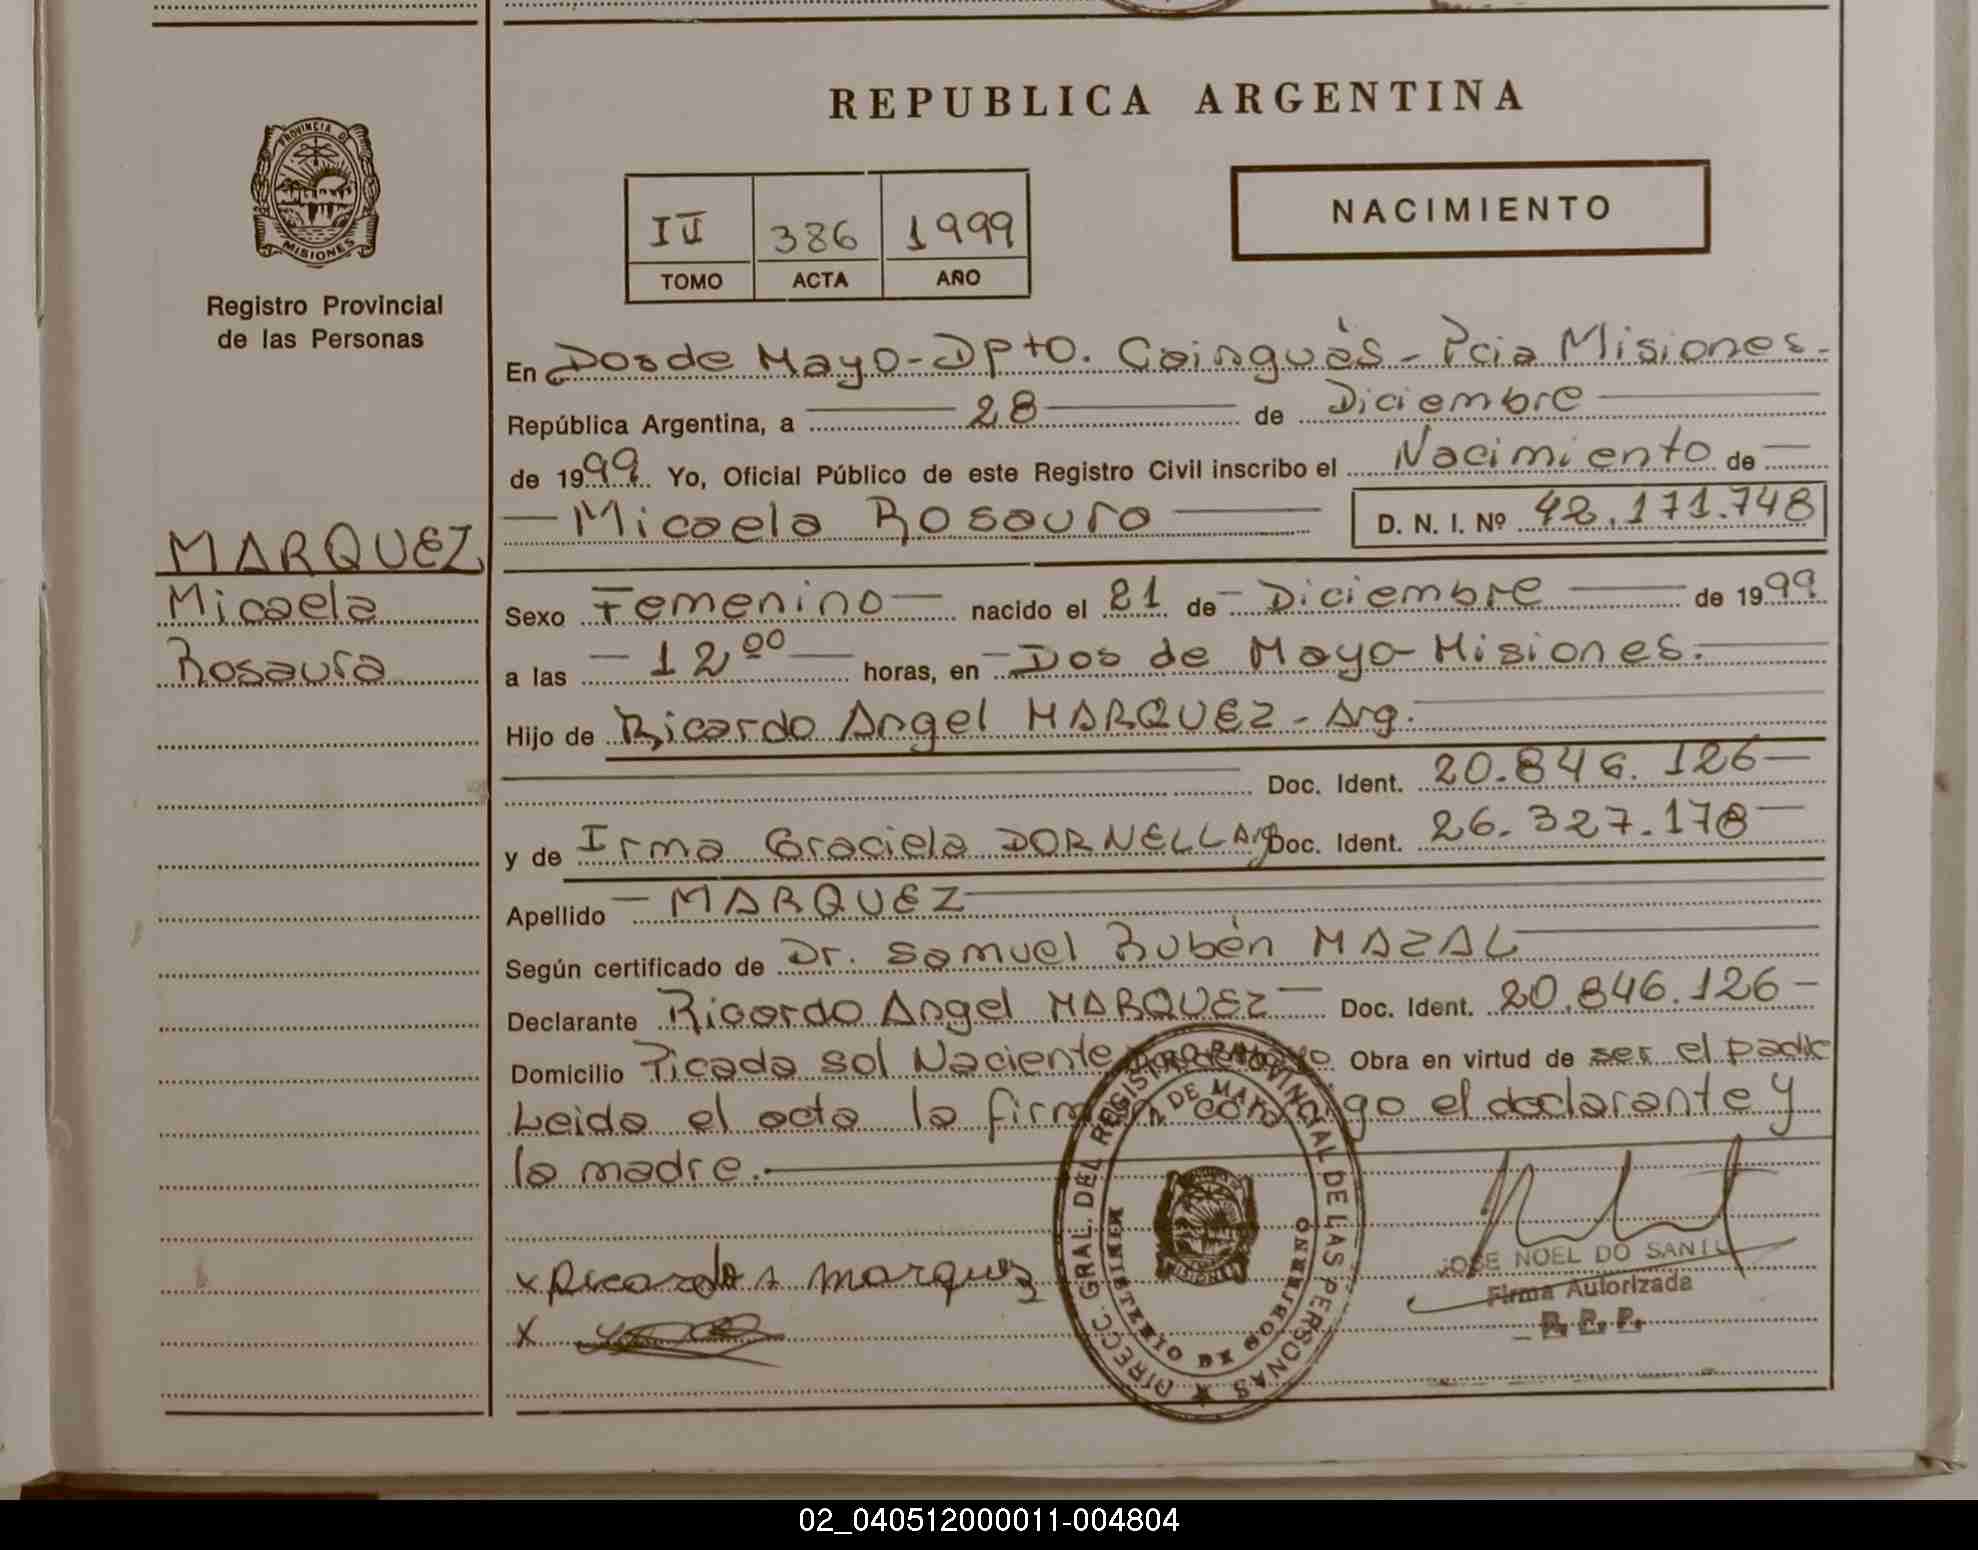 REPUBLICA ARGENTINA
PROVINCIA DE
MISIONES
Registro Provincial
de las Personas
II 386 1999
TOMO ACTA AÑO
NACIMIENTO
En Dos de Mayo - Dpto. Cainguás - Pcia Misiones.-
República Argentina, a 28 de Diciembre
de 1999. Yo, Oficial Público de este Registro Civil inscribo el Nacimiento de
Micaela Rosaura D. N. I. Nº 42.171.748
MARQUEZ
Micaela
Rosaura
Sexo Femenino nacido el 21 de Diciembre de 1999
a las 12 00 horas, en Dos de Mayo - Misiones.
Hijo de Ricardo Angel MARQUEZ - Arg.
Doc. Ident. 20.846.126
y de Irma Graciela DORNELL Arg Doc. Ident. 26.327.178
Apellido MARQUEZ
Según certificado de Dr. Samuel Rubén MAZAL
Declarante Ricardo Angel MARQUEZ Doc. Ident. 20.846.126
Domicilio Picada sol Naciente Obra en virtud de ser el padre
Leida el acta la firman conmigo el declarante y
la madre.
x Ricardo A Marquez
x
DIRECC. GRAL. DEL REGISTRO PROVINCIAL DE LAS PERSONAS
2 DE MAYO
MINISTERIO DE GOBIERNO
MISIONES
JOSE NOEL DO SANT
Firma Autorizada
R. P. P.
02_040512000011-004804